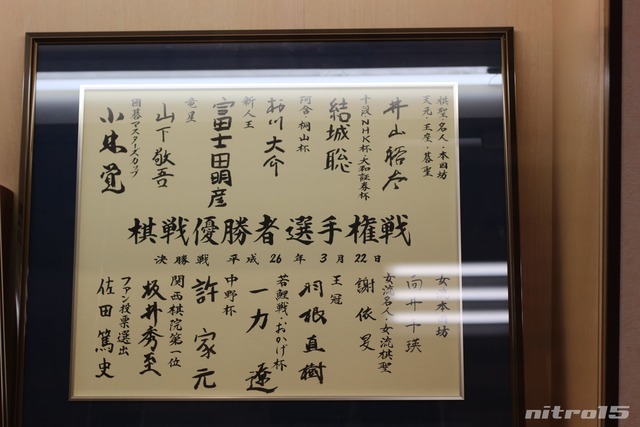 棋聖・名人・本因坊
天元・王座・碁聖
井山裕太
十段・NHK杯・大和証券杯
結城聡
阿含・桐山杯
村川大介
新人王
富士田明彦
竜星
山下敬吾
囲碁マスターズカップ
小林覚
棋戦優勝者選手権戦
決勝戦 平成26年3月22日
女流本因坊
向井千瑛
女流名人・女流棋聖
謝依旻
王冠
羽根直樹
若鯉戦・おかげ杯
一力遼
中野杯
許家元
関西棋院第一位
坂井秀至
ファン投票選出
佐田篤史
nitro15